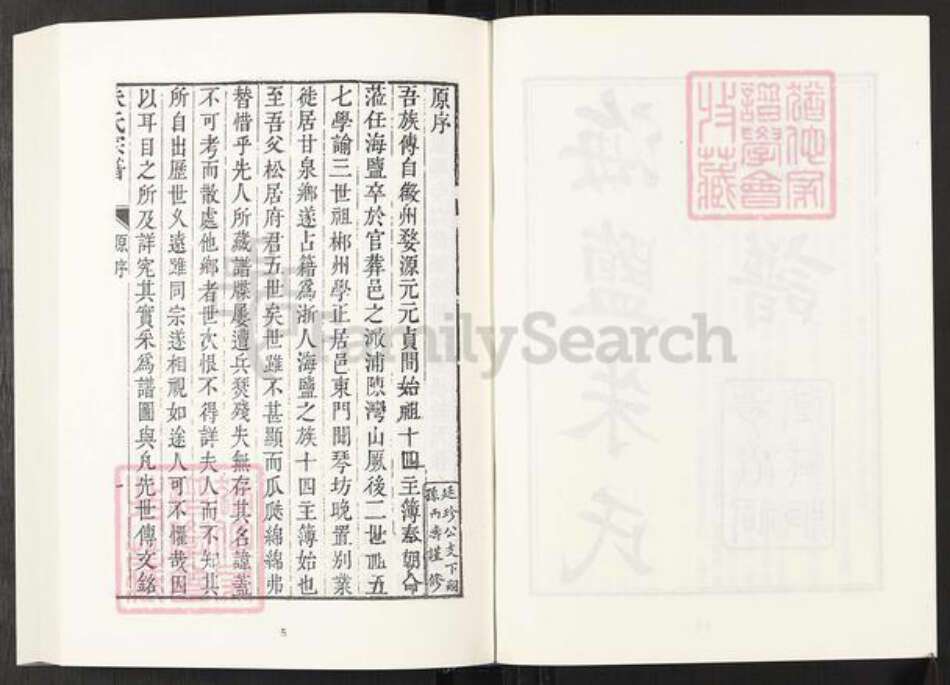 猶他家
譜學會
收藏
譜
海鹽朱氏
原序
吾族傳自徽州婺源元元貞間始祖十四主簿奉朝命
蒞任海鹽卒於官葬邑之澉浦陳灣山厥後二世五
七學諭三世祖郴州學正居邑東門聞琴坊晚置別業
徙居甘泉鄉遂占籍爲浙人海鹽之族十四主簿始也
至吾父松居府君五世矣世雖不甚顯而瓜瓞綿綿弗
替惜乎先人所藏譜牒屢遭兵燹殘失無存其名諱蓋
不可考而散處他鄉者世次恨不得詳夫人而不知其
所自出歷世久遠雖同宗遂相視如途人可不懼哉因
以耳目之所及詳究其實采爲譜圖與凡先世傳文銘
朱氏宗譜
原序
一
延珍公支下嗣
孫丙壽謹修
5
FamilySearch